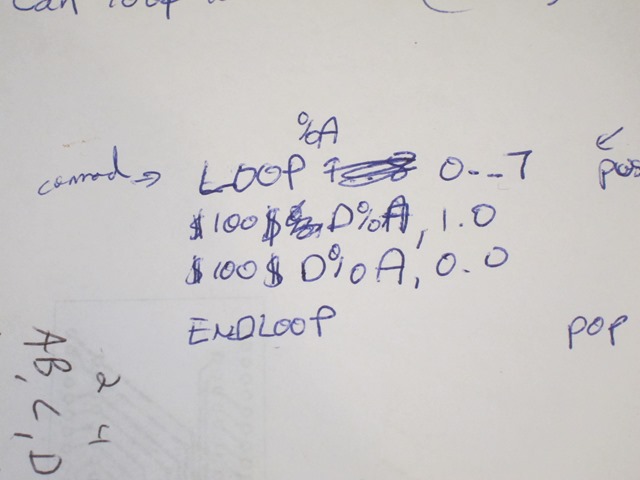 can loop
%A
comrad → LOOP 0--7 pus
$100$ D%A, 1.0
$100$ D%A, 0.0
ENDLOOP pop
AB, C, D
2 4